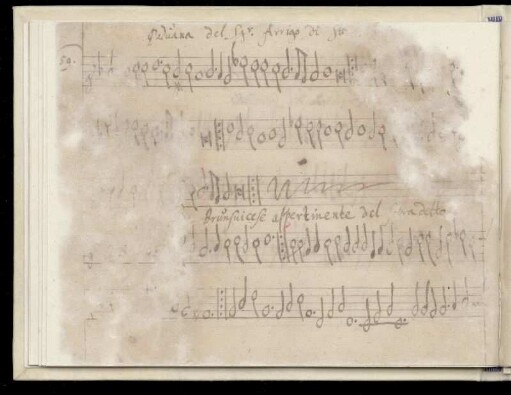 Paduana del Sigr. Arrigo di
59.
Brunsuicese appertinente del